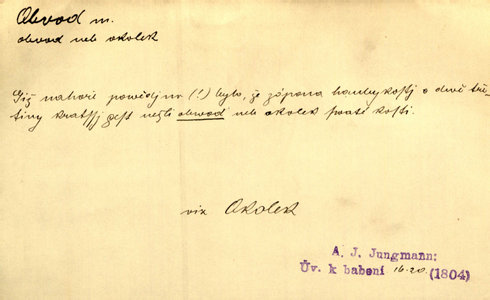 Obvod m.
obvod neb okolek
Giž nahoře powědjno (!) bylo, že zápona hanbykostj o dvě tře-
tiny kratssj gest nežli obvod neb okolek swaté kosti.
viz Okolek
A. J. Jungmann:
Úv. k babení 16.20 (1804)